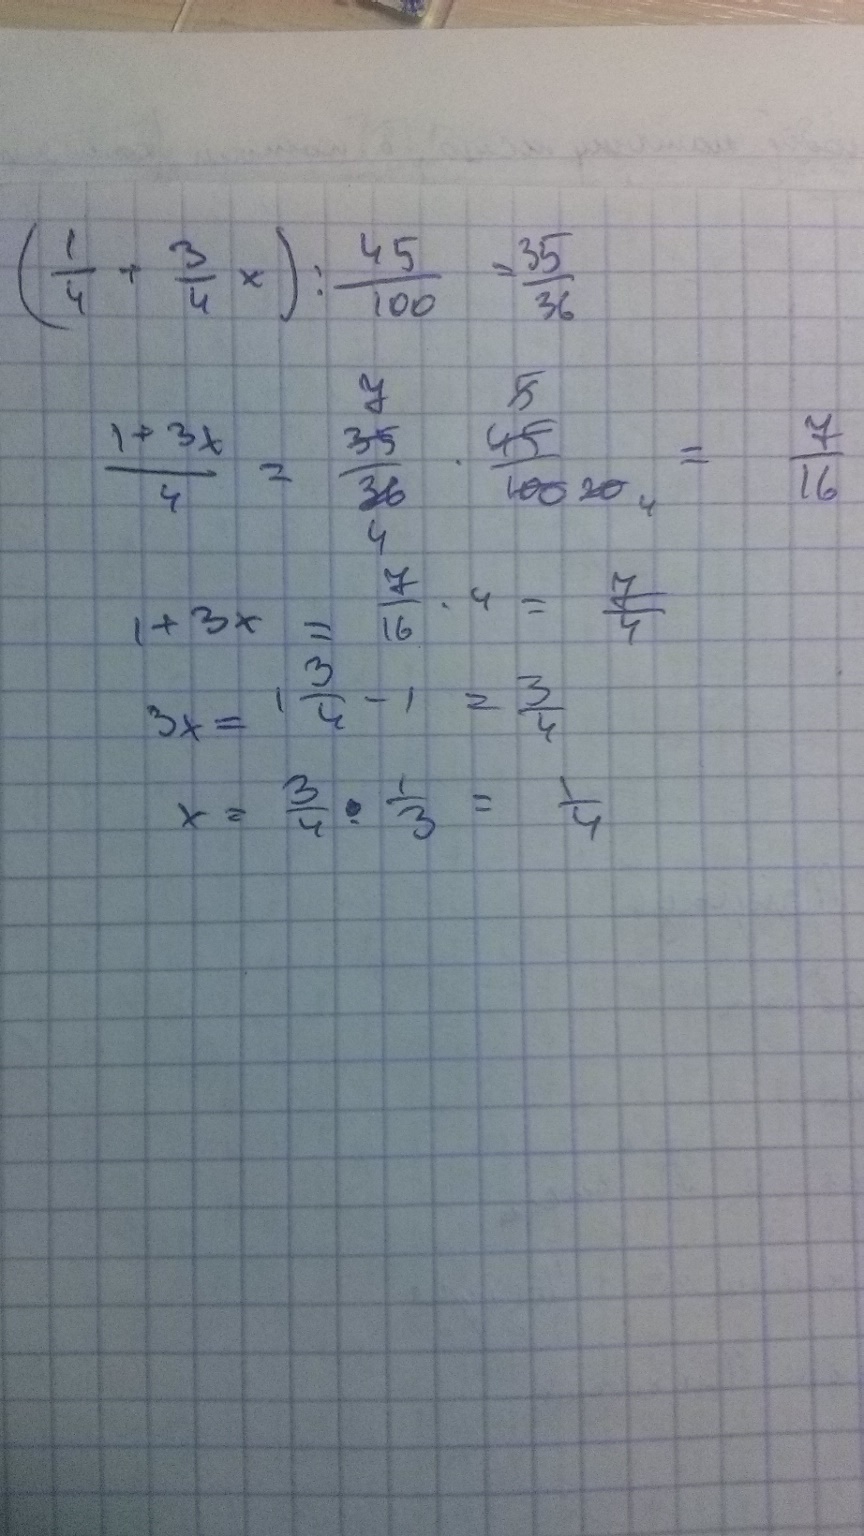 (1/4 + 3/4 x) : 45/100 = 35/36
(1+3x)/4 = 35/36 · 45/100 = 7/16
1+3x = 7/16 · 4 = 7/4
3x = 1 3/4 - 1 = 3/4
x = 3/4 · 1/3 = 1/4